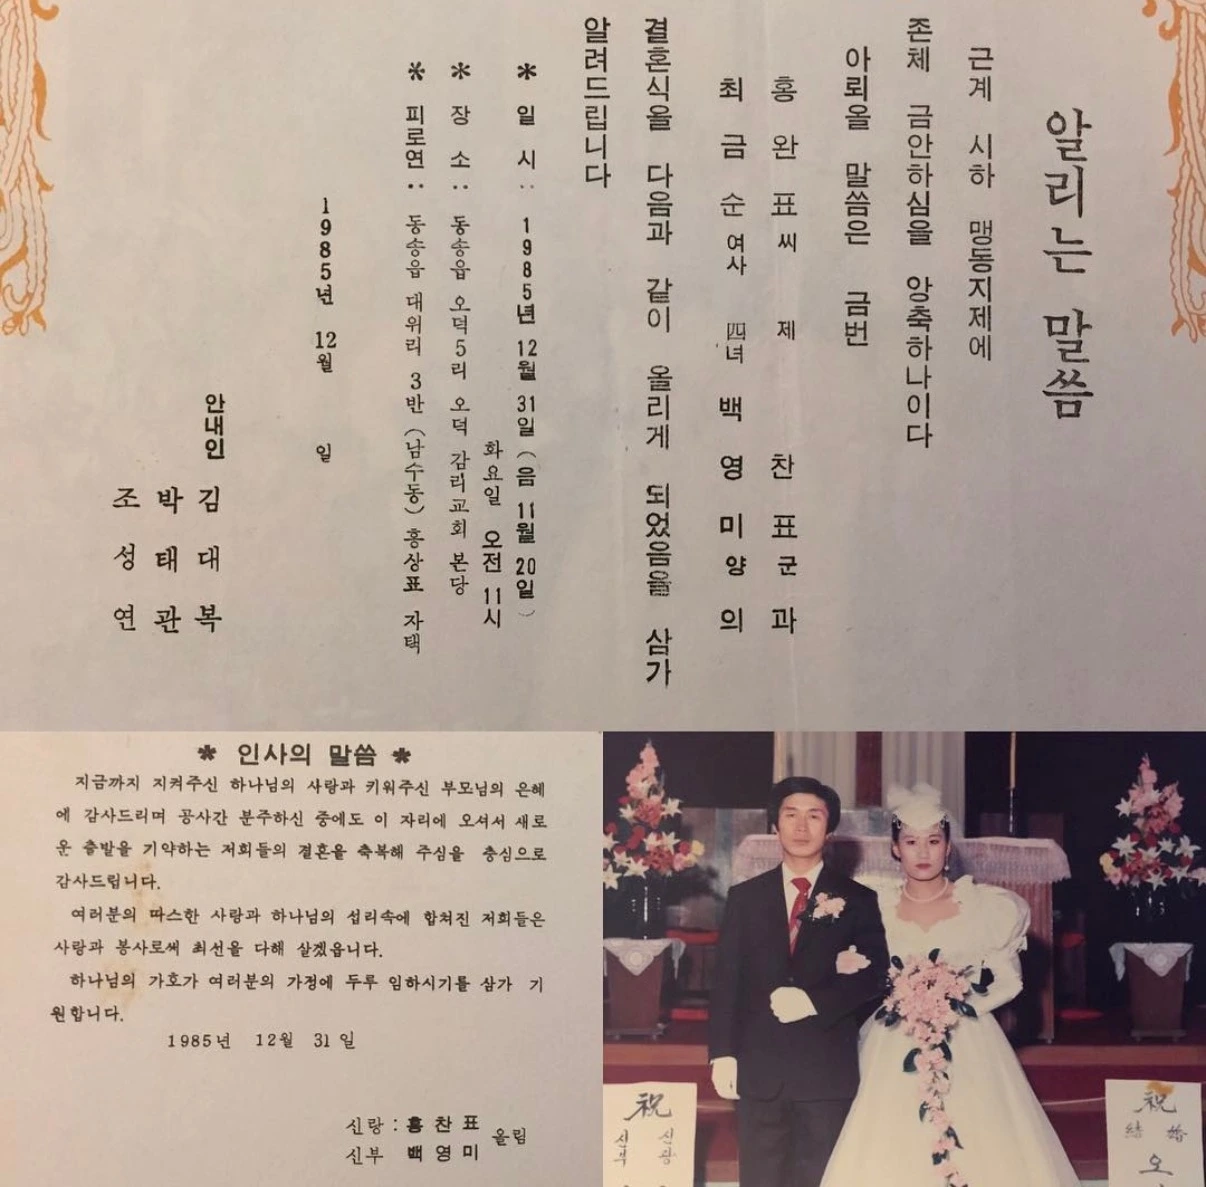 알리는 말씀
근계 시하 맹동지제에
존체 금안하심을 앙축하나이다
아뢰올 말씀은 금번
홍완표 씨 제 찬표 군 과
최금순 여사 四녀 백영미 양 의
결혼식을 다음과 같이 올리게 되었음을 삼가
알려드립니다
* 일 시 : 1985년 12월 31일 (음 11월 20일)
화요일 오전 11시
* 장 소 : 동송읍 오덕5리 오덕 감리교회 본당
* 피로연 : 동송읍 대위리 3반 (남수동) 홍상표 자택
1985년 12월 일
안내인 김대복
박태관
조성연
* 인사의 말씀 *
지금까지 지켜주신 하나님의 사랑과 키워주신 부모님의 은혜
에 감사드리며 공사간 분주하신 중에도 이 자리에 오셔서 새로
운 출발을 기약하는 저희들의 결혼을 축복해 주심을 충심으로
감사드립니다.
여러분의 따스한 사랑과 하나님의 섭리속에 합쳐진 저희들은
사랑과 봉사로써 최선을 다해 살겠읍니다.
하나님의 가호가 여러분의 가정에 두루 임하시기를 삼가 기
원합니다.
1985년 12월 31일
신랑 : 홍찬표
신부 백영미 올림
祝
신랑
신부
祝
結婚
오